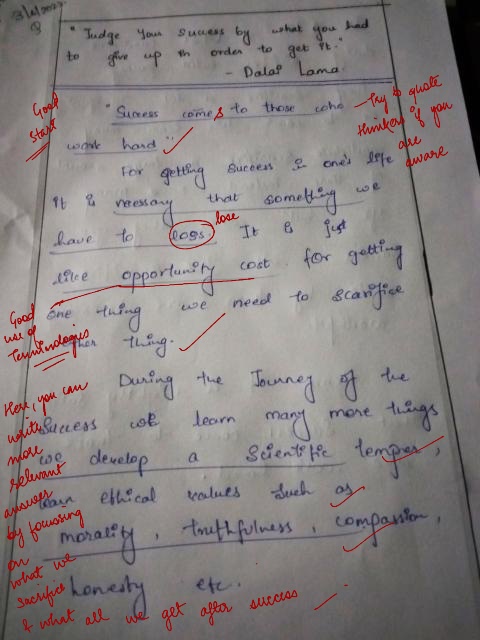 3/4/2022
Q
"Judge Your Success by what you had
to give up in order to get it."
- Dalai Lama.
Good
start
"Success comes to those who
work hard"
Try to quote
thinkers if you
are
aware
For getting Success in one's life
It is necessary that something we
have to loss. It is just
lose
like opportunity cost. for getting
one thing we need to scarifice
other thing.
Good
use of
Terminologies
During the Journey of the
Success we learn many more things
we develop a Scientific temper,
learn ethical values such as
morality, truthfulness, compassion,
honesty etc.
Here, you can
write
more
relevant
answer
by focusing
on
what we
sacrifice
& what all we get after success